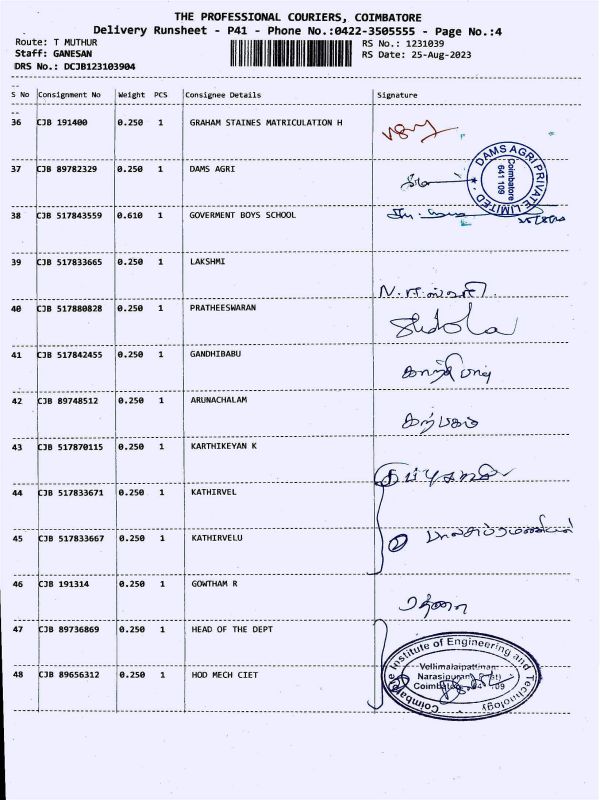 THE PROFESSIONAL COURIERS, COIMBATORE
Delivery Runsheet - P41 - Phone No.:0422-3505555 - Page No.:4
Route: T MUTHUR RS No.: 1231039
Staff: GANESAN RS Date: 25-Aug-2023
DRS No.: DCJB123103904
S No Consignment No Weight PCS Consignee Details Signature
36 CJB 191400 0.250 1 GRAHAM STAINES MATRICULATION H
37 CJB 89782329 0.250 1 DAMS AGRI
DAMS AGRI PRIVATE LIMITED
Coimbatore
641 109
38 CJB 517843559 0.610 1 GOVERMENT BOYS SCHOOL
39 CJB 517833665 0.250 1 LAKSHMI
40 CJB 517880828 0.250 1 PRATHEESWARAN
41 CJB 517842455 0.250 1 GANDHIBABU
காந்திபாபு
42 CJB 89748512 0.250 1 ARUNACHALAM
கற்பகம்
43 CJB 517870115 0.250 1 KARTHIKEYAN K
44 CJB 517833671 0.250 1 KATHIRVEL
45 CJB 517833667 0.250 1 KATHIRVELU
பாலசுப்ரமணியன்
46 CJB 191314 0.250 1 GOWTHAM R
47 CJB 89736869 0.250 1 HEAD OF THE DEPT
48 CJB 89656312 0.250 1 HOD MECH CIET
Coimbatore Institute of Engineering and Technology
Vellimalaipattinam
Narasipuram (Post)